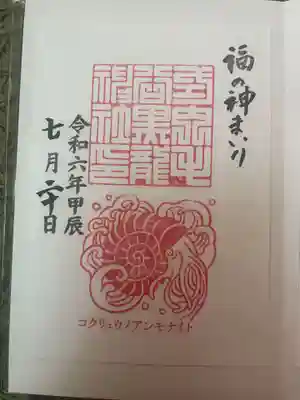 福の神まいり
宮黒龍
神社印
令和六年甲辰
七月二十日
コクリュウノアンモナイト